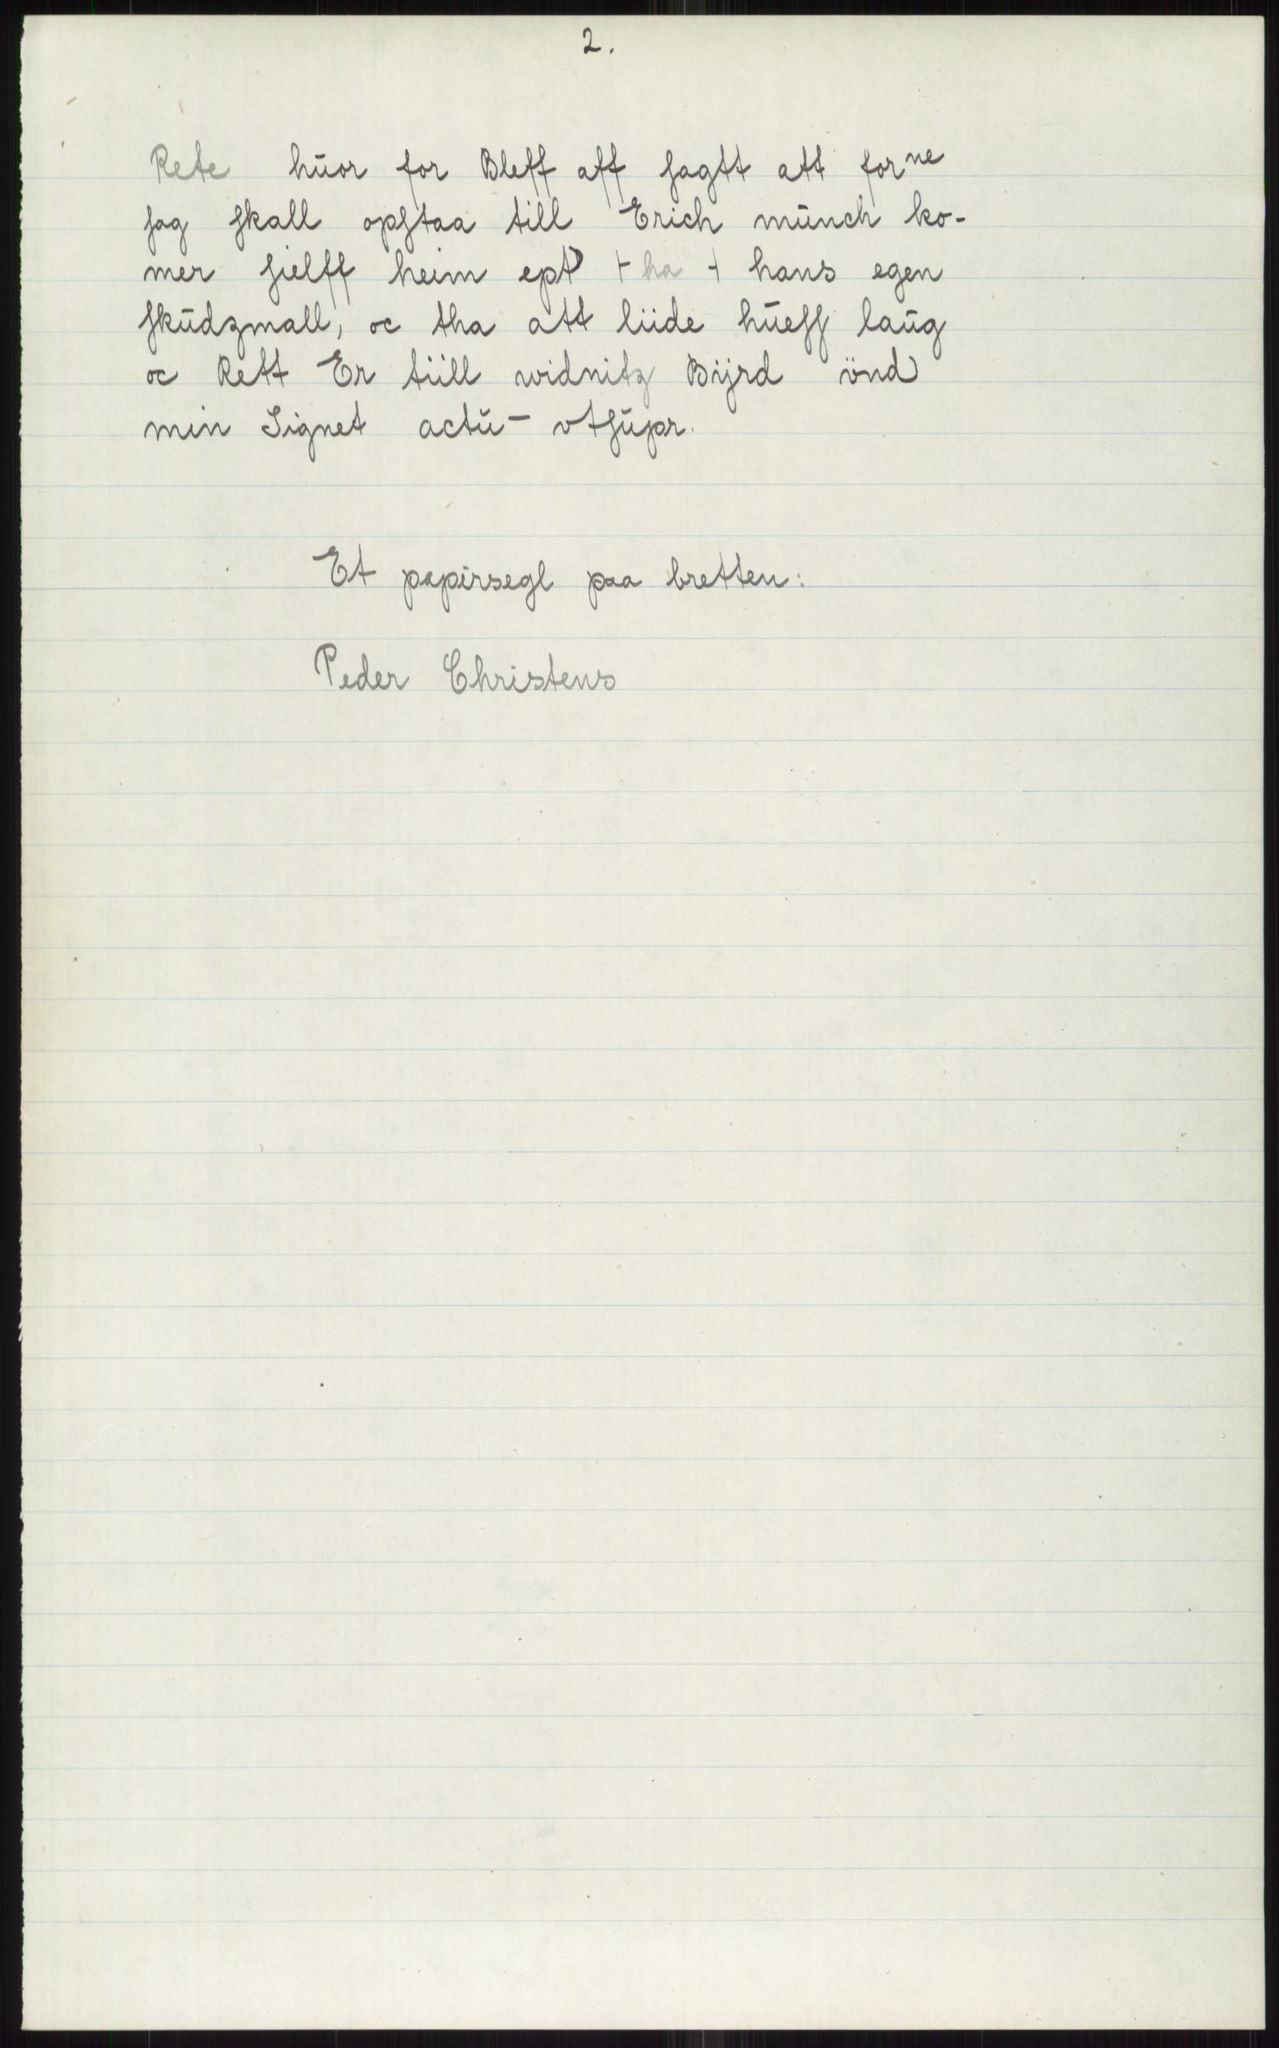 2.
Rete hūor for Bleff aff sagtt att forne
sag skall opstaa till Erich mūnch ko-
mer sielff heim ept + ha + hans egen
skūdzmall, oc tha att liide hūess laūg
oc Rett Er tiill widnitz Bijrd önd
min Signet actū- vtsūpr.
Et papirsegl paa bretten:
Peder Christens